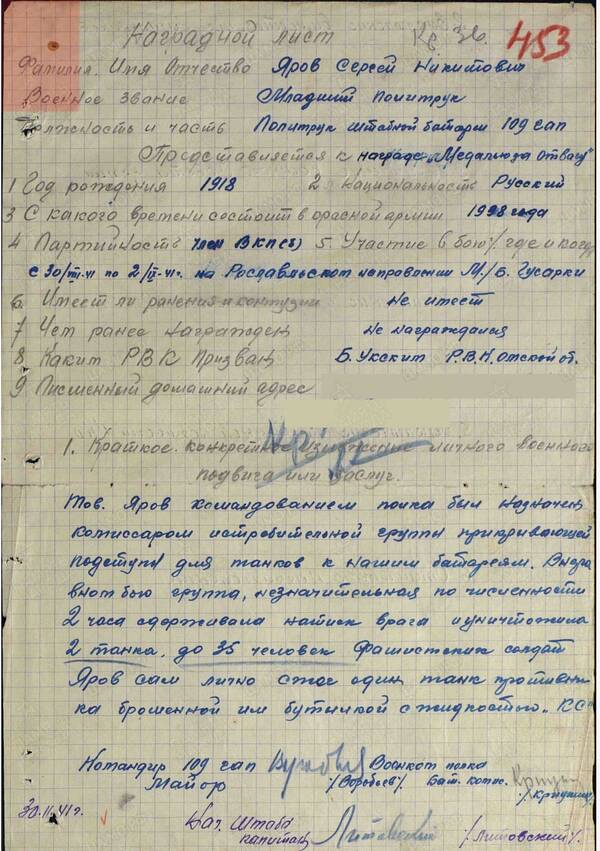 Наградной лист Кр. Зв. 453
Фамилия. Имя Отчество Яров Сергей Никитович
Военное звание Младший Политрук
Должность и часть Политрук штабной батареи 109 сап
Представляется к награде „Медалью за отвагу"
1 Год рождения 1918 2 Национальность Русский
3 С какого времени состоит в красной армии 1938 года
4 Партийность член ВКП(б) 5. Участие в бою/ где и когда
с 30/ по 2/ на Рославльском направлении М./Б. Гусарки
6 Имеет ли ранения и контузии Не имеет
7 Чем ранее награжден Не награждался
8 Каким РВК Призван Б. Укским Р.В.К. Омской об.
9 Писменный домашний адрес
1. Краткое. конкретное изложение личного военного
подвига или заслуг.
Тов. Яров командованием полка был назначен
комиссаром истребительной группы прикривающей
подступы для танков к нашим батареям.
бою группа, незначительная по численности
2 часа сдерживала натиск врага и уничтожила
2 танка, до 35 человек Фашистских солдат
Яров сам лично сжог один танк противни-
ка брошенной им бутылкой с жидкостью „КС"
Командир 109 сап Военком полка
Майор /Воробьев/ Бат. комис.
41г. Нач. Штаба
капитан /Литовский/.